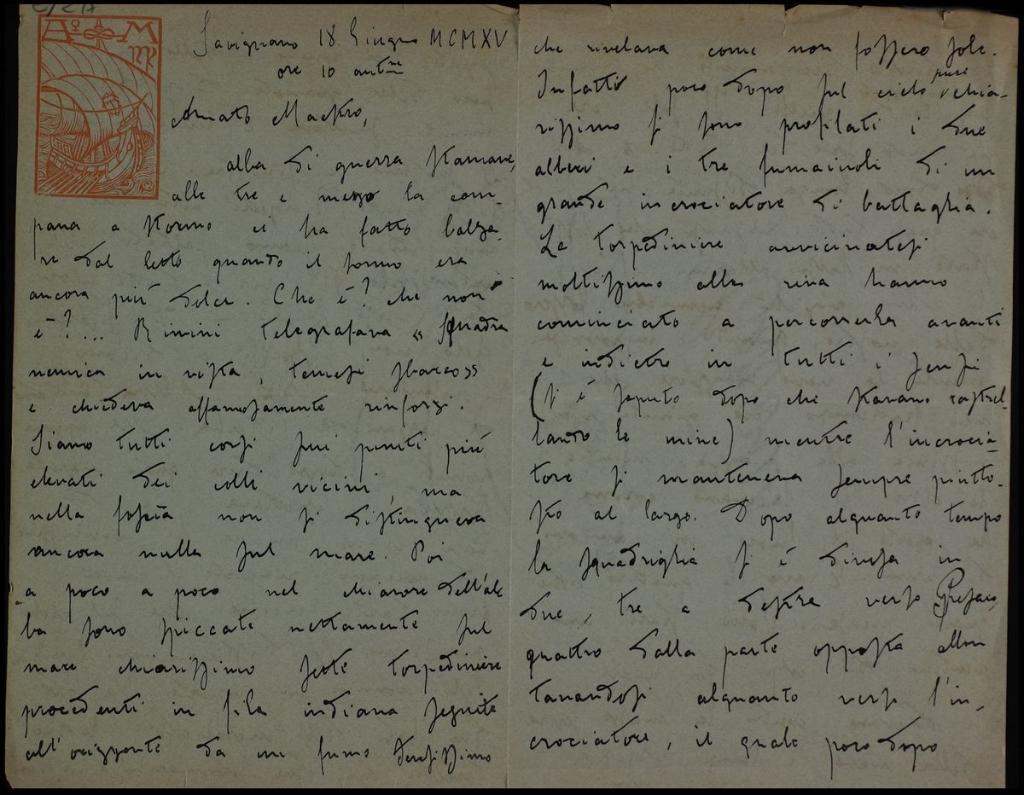 A M
Savignano 18 Giugno MCMXV
ore 10 antne
Amato Maestro,
alba di guerra stamane,
alle tre e mezzo la cam-
pana a stormo ci ha fatto balza-
re dal letto quando il sonno era
ancora più dolce. Che è? che non
è?... Rimini telegrafava « Squadra
nemica in vista, temesi sbarco »
e chiedeva affannosamente rinforzi.
Siamo tutti corsi sui punti più
elevati dei colli vicini, ma
nella foschia non si distingueva
ancora nulla sul mare. Poi
a poco a poco nel chiarore dell'al-
ba sono spiccate nettamente sul
mare chiarissimo sette torpediniere
procedenti in fila indiana seguite
all'orizzonte da un fumo densissimo
che rivelava come non fossero sole.
Infatti poco dopo sul cielo pure chia-
rissimo si sono profilati i due
alberi e i tre fumaiuoli di un
grande incrociatore di battaglia.
Le torpediniere avvicinatesi
moltissimo alla riva hanno
cominciato a percorrerla avanti
e indietro in tutti i sensi
(si è saputo dopo che stavano rastrel-
lando le mine) mentre l'incrocia-
tore si manteneva sempre piutto-
sto al largo. Dopo alquanto tempo
la squadriglia si è divisa in
due, tre a destra verso
quattro dalla parte opposta allon
tanandosi alquanto verso l'in-
crociatore, il quale poco dopo